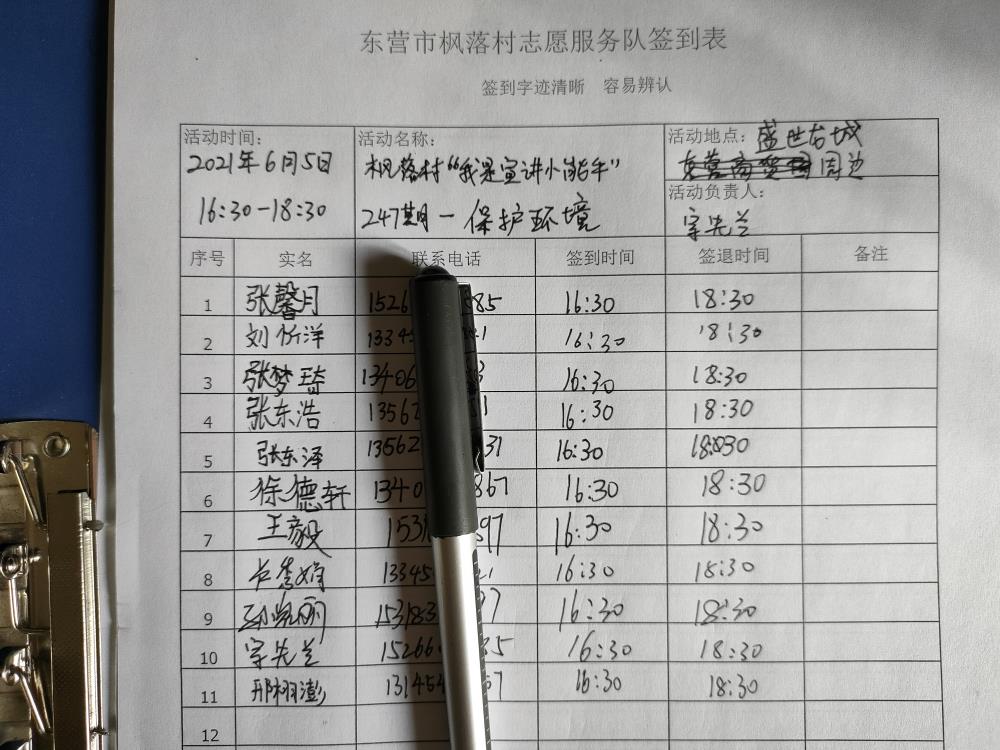 东营市枫落村志愿服务队签到表
签到字迹清晰 容易辨认
活动时间：
2021年6月5日
16:30-18:30
活动名称：
枫落村“我是宣讲小能手”
247期-保护环境
活动地点：盛世古城
周边
活动负责人：
宰先兰
序号 实名 联系电话 签到时间 签退时间 备注
1 张馨月 1526 585 16:30 18:30
2 刘忻洋 1334 41 16:30 18:30
3 张梦琦 13406 3 16:30 18:30
4 张东浩 13562 1 16:30 18:30
5 张东泽 13562 31 16:30 18:30
6 徐德轩 1340 867 16:30 18:30
7 王毅 1531 97 16:30 18:30
8 13345 21 16:30 18:30
9 153183 7 16:30 18:30
10 宰先兰 15266 85 16:30 18:30
11 邢栩澎 131454 57 16:30 18:30
12